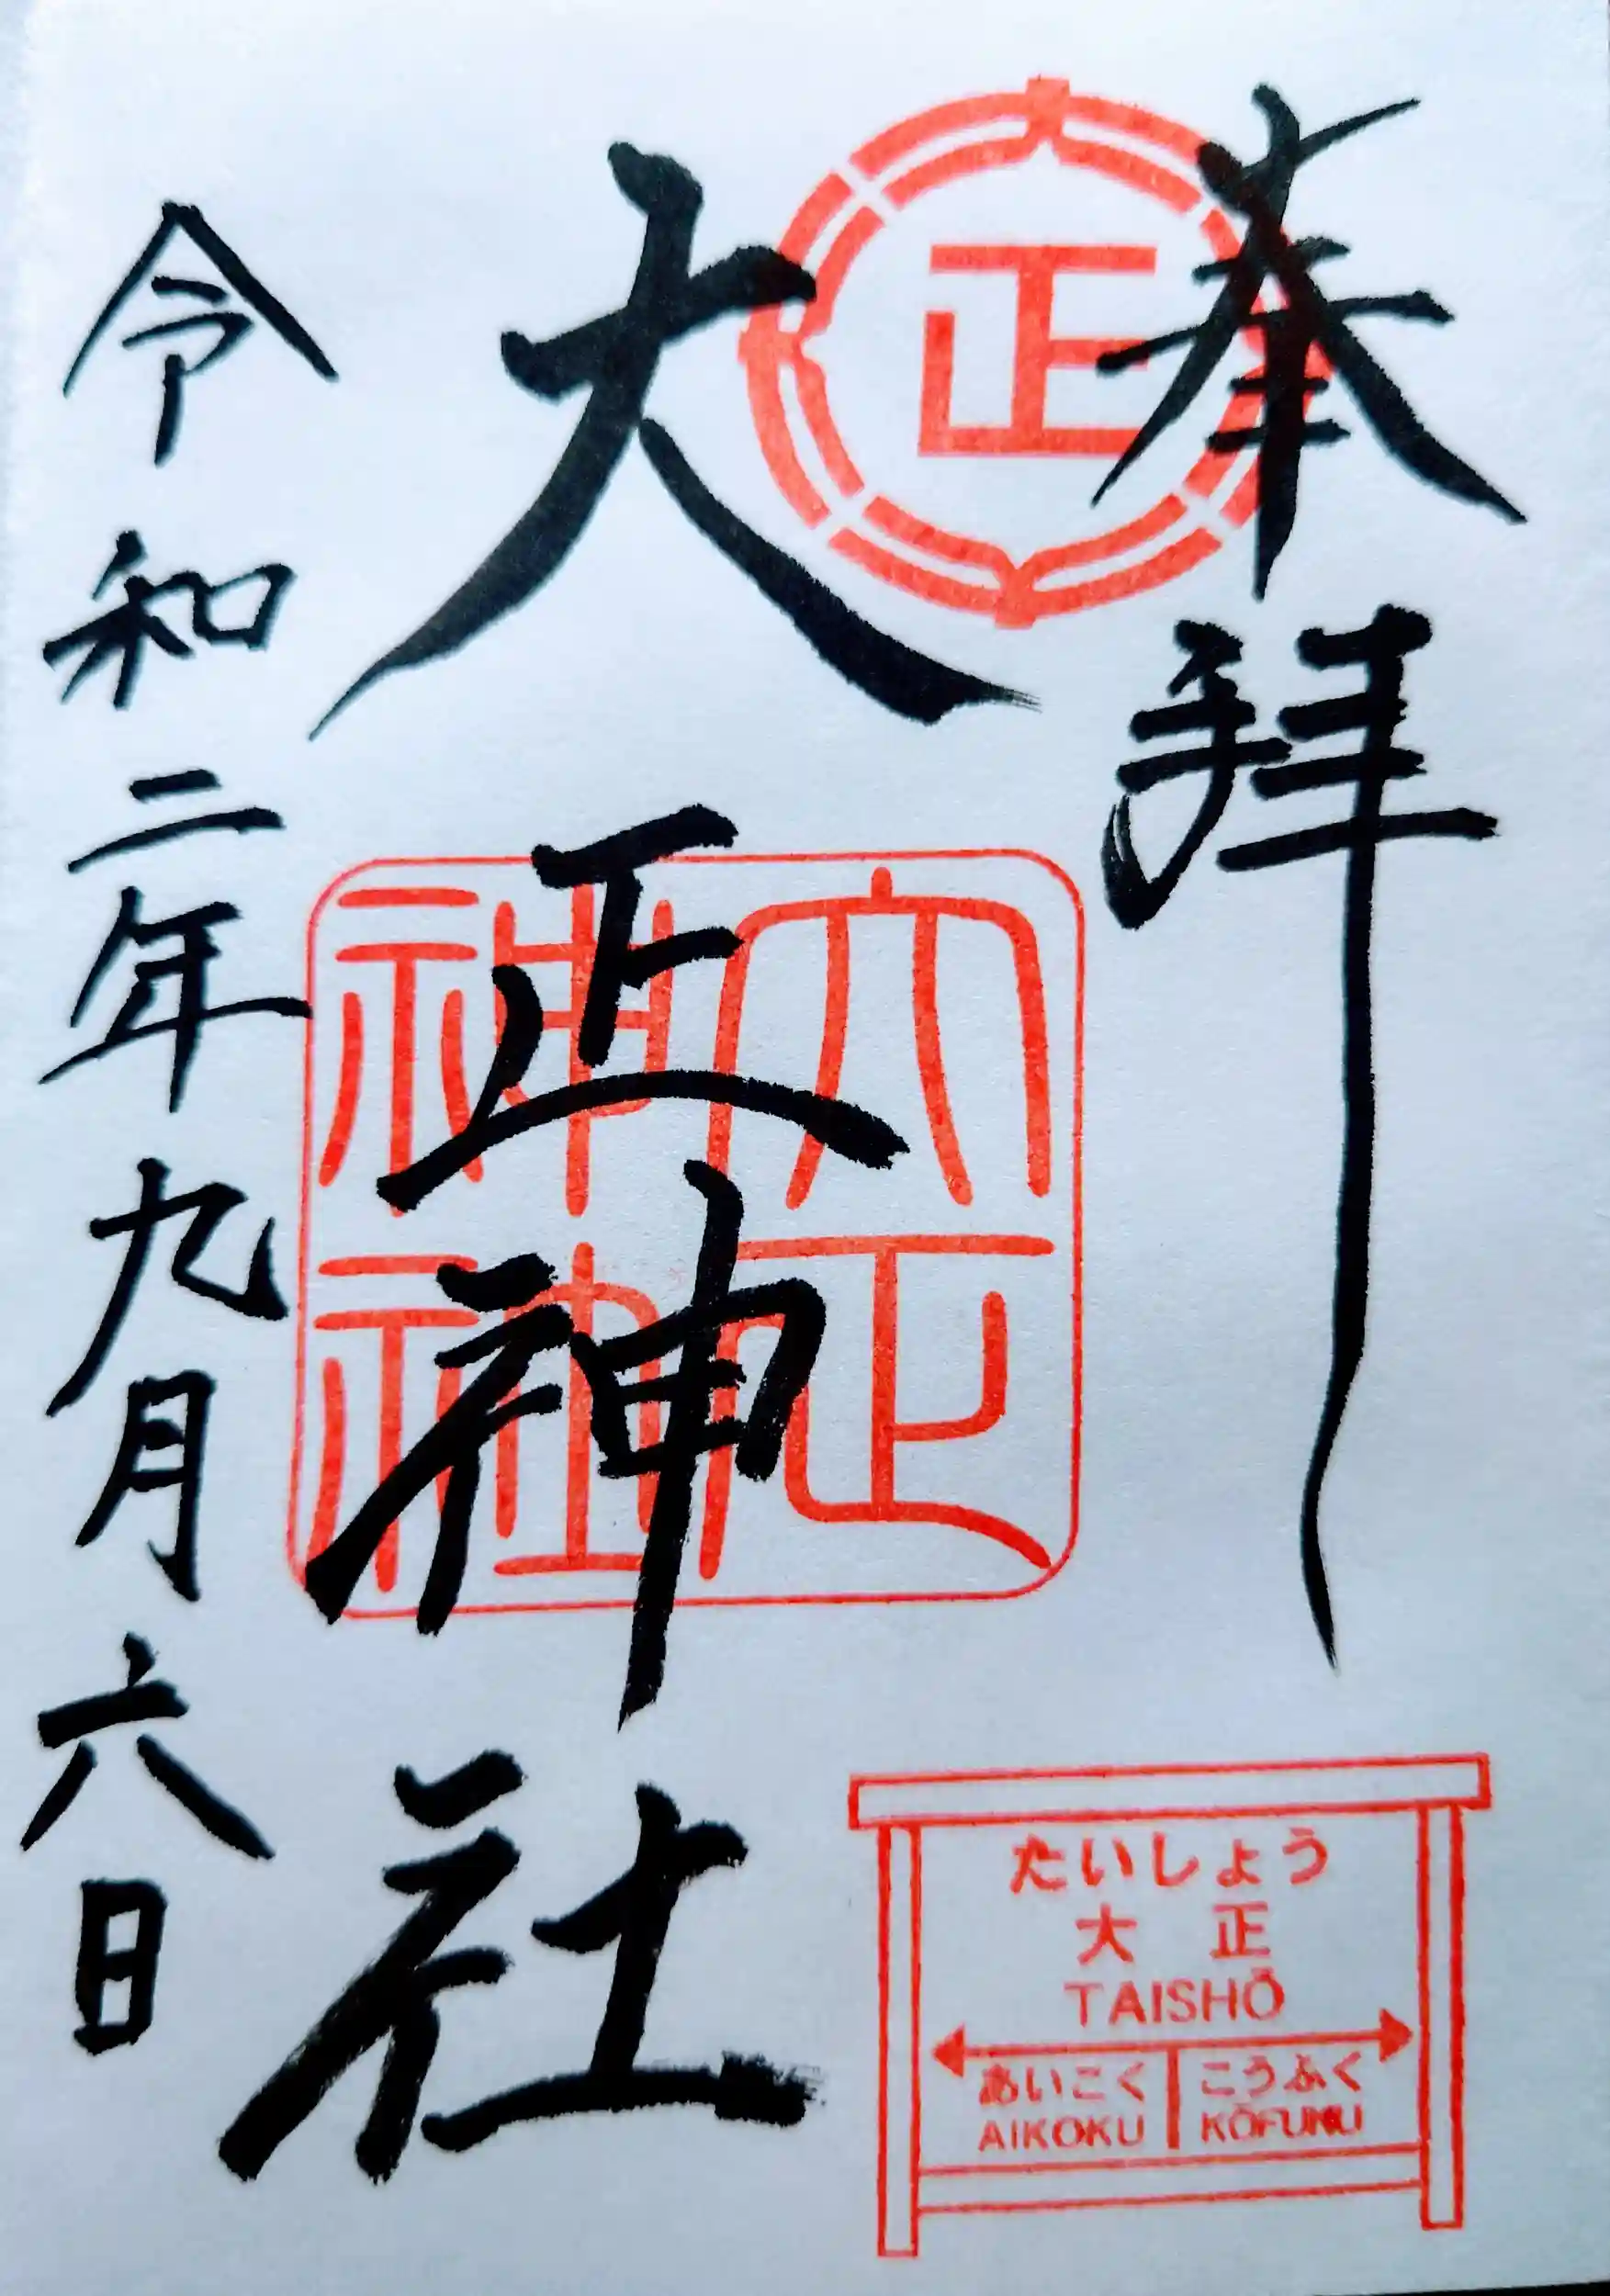 奉拝
正
大正神社
大正
神社
令和二年九月六日
たいしょう
大正
TAISHŌ
あいこく こうふく
AIKOKU KŌFUKU